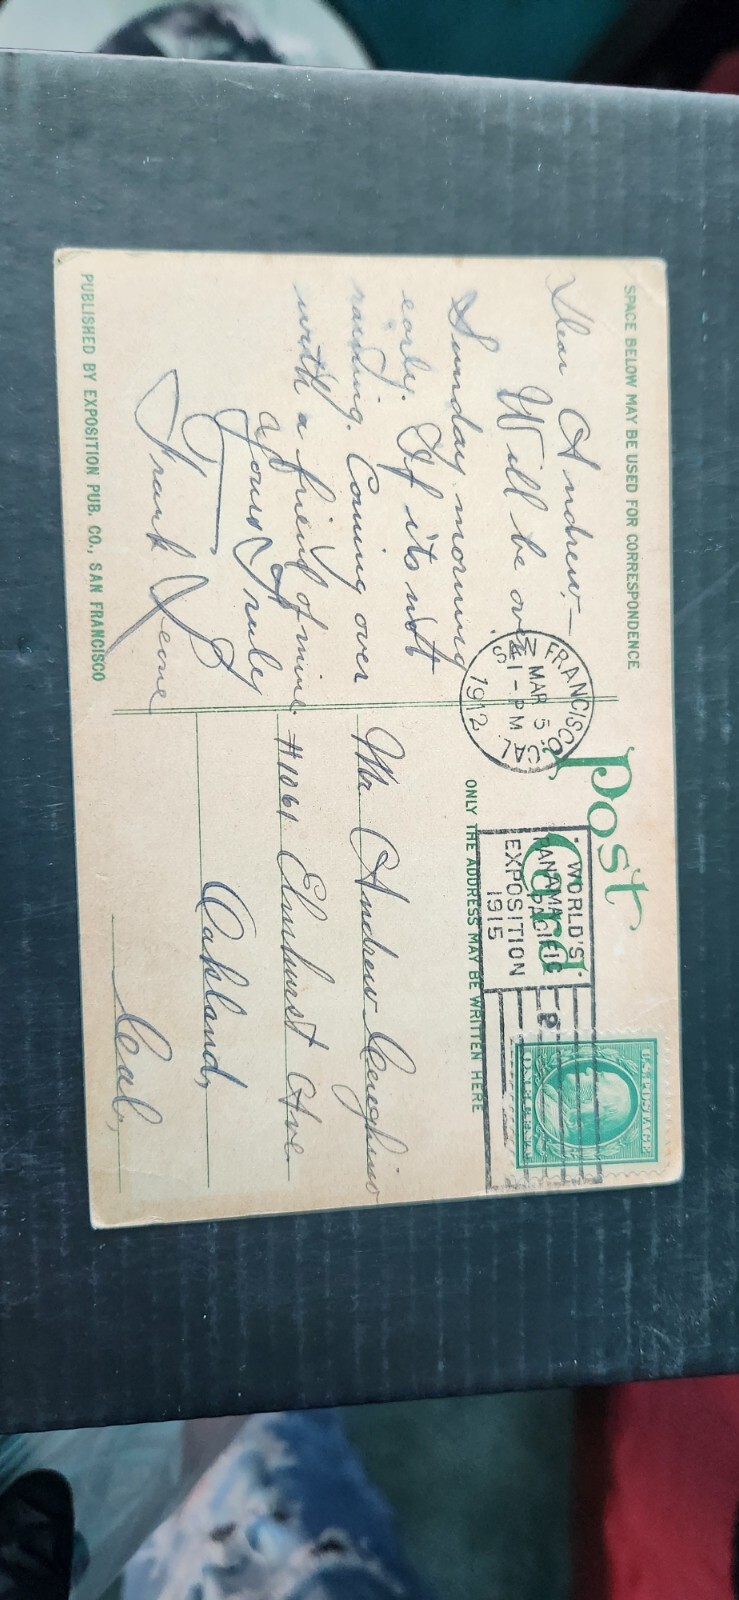 Post Card
SPACE BELOW MAY BE USED FOR CORRESPONDENCE
ONLY THE ADDRESS MAY BE WRITTEN HERE
U.S. POSTAGE
SAN FRANCISCO, CAL
MAR 5
1-PM
1912
WORLD'S
PANAMA PACIFIC
EXPOSITION
1915
Dear Andrew:—
Will be over
Sunday morning
early. If its not
raining. Coming over
with a friend of mine
Yours Truly
Frank
Mr. Andrew
#1061 Elmhurst Ave.
Oakland,
Cal,
PUBLISHED BY EXPOSITION PUB. CO., SAN FRANCISCO